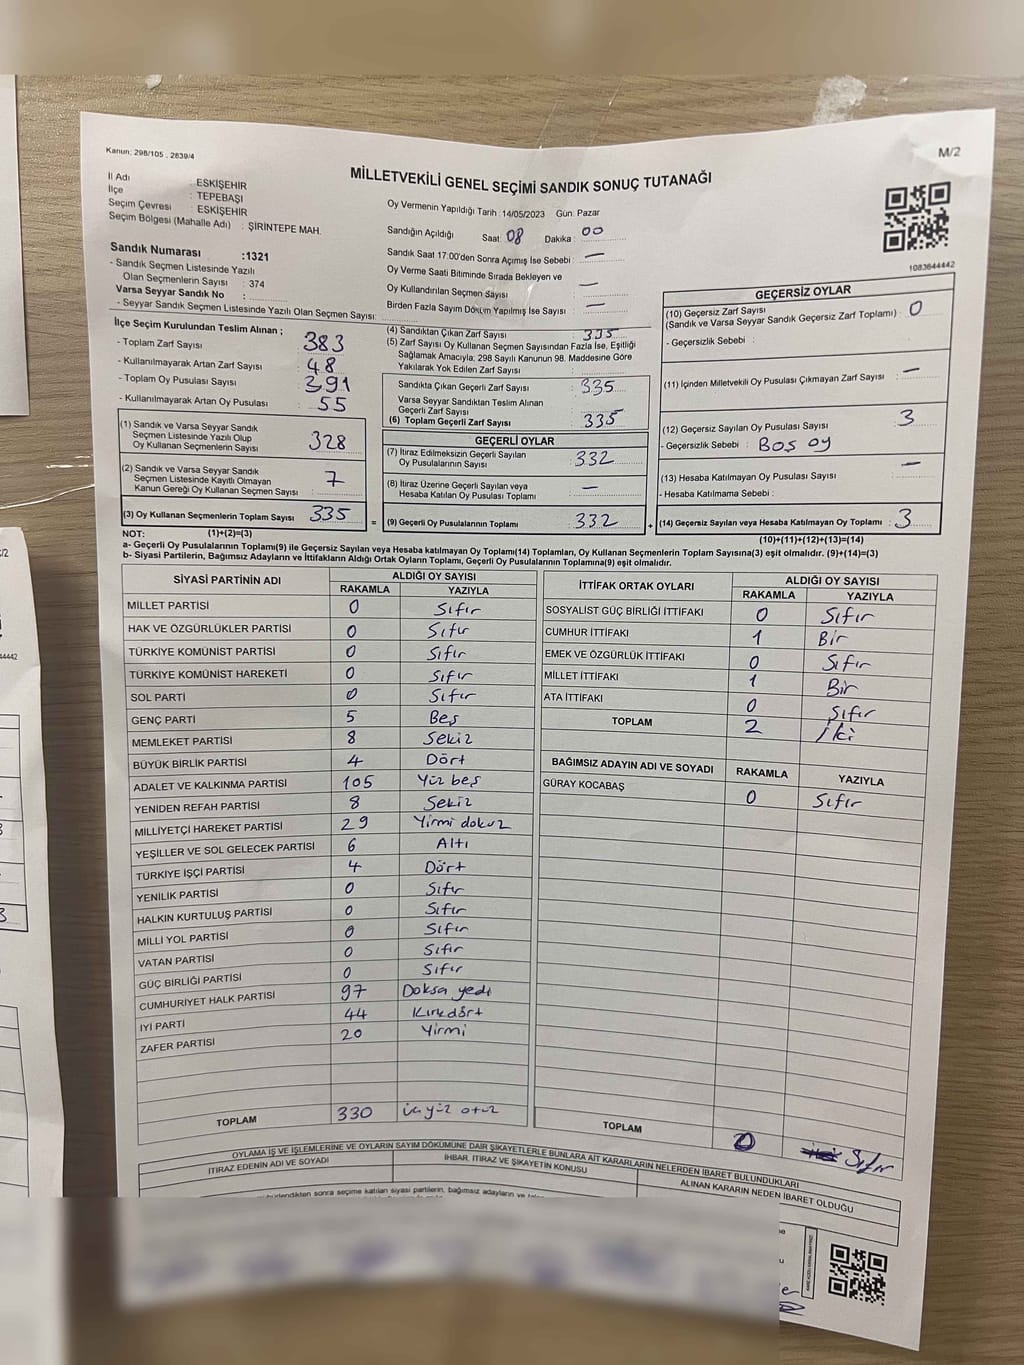 Kanun: 298/105 , 2839/4
M/2
MİLLETVEKİLİ GENEL SEÇİMİ SANDIK SONUÇ TUTANAĞI
İl Adı : ESKİŞEHİR
İlçe : TEPEBAŞI
Seçim Çevresi : ESKİŞEHİR
Seçim Bölgesi (Mahalle Adı) : ŞİRİNTEPE MAH.
Sandık Numarası :1321
- Sandık Seçmen Listesinde Yazılı
Olan Seçmenlerin Sayısı : 374
Varsa Seyyar Sandık No :
- Seyyar Sandık Seçmen Listesinde Yazılı Olan Seçmen Sayısı:
Oy Vermenin Yapıldığı Tarih :14/05/2023 Gün: Pazar
Sandığın Açıldığı Saat: 08 Dakika : 00
Sandık Saat 17:00'den Sonra Açımış İse Sebebi : —
Oy Verme Saati Bitiminde Sırada Bekleyen ve
Oy Kullandırılan Seçmen Sayısı : —
Birden Fazla Sayım Döküm Yapılmış İse Sayısı : —
1083644442
İlçe Seçim Kurulundan Teslim Alınan ;
- Toplam Zarf Sayısı : 383
- Kullanılmayarak Artan Zarf Sayısı : 48
- Toplam Oy Pusulası Sayısı : 391
- Kullanılmayarak Artan Oy Pusulası : 55
(1) Sandık ve Varsa Seyyar Sandık
Seçmen Listesinde Yazılı Olup
Oy Kullanan Seçmenlerin Sayısı : 328
(2) Sandık ve Varsa Seyyar Sandık
Seçmen Listesinde Kayıtlı Olmayan
Kanun Gereği Oy Kullanan Seçmen Sayısı : 7
(3) Oy Kullanan Seçmenlerin Toplam Sayısı : 335
(1)+(2)=(3)
(4) Sandıktan Çıkan Zarf Sayısı : 335
(5) Zarf Sayısı Oy Kullanan Seçmen Sayısından Fazla İse, Eşitliği
Sağlamak Amacıyla; 298 Sayılı Kanunun 98. Maddesine Göre
Yakılarak Yok Edilen Zarf Sayısı :
Sandıkta Çıkan Geçerli Zarf Sayısı : 335
Varsa Seyyar Sandıktan Teslim Alınan
Geçerli Zarf Sayısı :
(6) Toplam Geçerli Zarf Sayısı : 335
GEÇERLİ OYLAR
(7) İtiraz Edilmeksizin Geçerli Sayılan
Oy Pusulalarının Sayısı : 332
(8) İtiraz Üzerine Geçerli Sayılan veya
Hesaba Katılan Oy Pusulası Toplamı : —
= (9) Geçerli Oy Pusulalarının Toplamı : 332
GEÇERSİZ OYLAR
(10) Geçersiz Zarf Sayısı
(Sandık ve Varsa Seyyar Sandık Geçersiz Zarf Toplamı) : 0
- Geçersizlik Sebebi :
(11) İçinden Milletvekili Oy Pusulası Çıkmayan Zarf Sayısı : —
(12) Geçersiz Sayılan Oy Pusulası Sayısı : 3
- Geçersizlik Sebebi : Boş oy
(13) Hesaba Katılmayan Oy Pusulası Sayısı : —
- Hesaba Katılmama Sebebi :
+ (14) Geçersiz Sayılan veya Hesaba Katılmayan Oy Toplamı : 3
(10)+(11)+(12)+(13)=(14)
NOT:
a- Geçerli Oy Pusulalarının Toplamı(9) ile Geçersiz Sayılan veya Hesaba katılmayan Oy Toplamı(14) Toplamları, Oy Kullanan Seçmenlerin Toplam Sayısına(3) eşit olmalıdır. (9)+(14)=(3)
b- Siyasi Partilerin, Bağımsız Adayların ve İttifakların Aldığı Ortak Oyların Toplamı, Geçerli Oy Pusulalarının Toplamına(9) eşit olmalıdır.
SİYASİ PARTİNİN ADI ALDIĞI OY SAYISI
RAKAMLA YAZIYLA
MİLLET PARTİSİ 0 Sıfır
HAK VE ÖZGÜRLÜKLER PARTİSİ 0 Sıfır
TÜRKİYE KOMÜNİST PARTİSİ 0 Sıfır
TÜRKİYE KOMÜNİST HAREKETİ 0 Sıfır
SOL PARTİ 0 Sıfır
GENÇ PARTİ 5 Beş
MEMLEKET PARTİSİ 8 Sekiz
BÜYÜK BİRLİK PARTİSİ 4 Dört
ADALET VE KALKINMA PARTİSİ 105 Yüz beş
YENİDEN REFAH PARTİSİ 8 Sekiz
MİLLİYETÇİ HAREKET PARTİSİ 29 Yirmi dokuz
YEŞİLLER VE SOL GELECEK PARTİSİ 6 Altı
TÜRKİYE İŞÇİ PARTİSİ 4 Dört
YENİLİK PARTİSİ 0 Sıfır
HALKIN KURTULUŞ PARTİSİ 0 Sıfır
MİLLİ YOL PARTİSİ 0 Sıfır
VATAN PARTİSİ 0 Sıfır
GÜÇ BİRLİĞİ PARTİSİ 0 Sıfır
CUMHURİYET HALK PARTİSİ 97 Doksa yedi
İYİ PARTİ 44 Kırkdört
ZAFER PARTİSİ 20 Yirmi
TOPLAM 330 üçyüz otuz
İTTİFAK ORTAK OYLARI ALDIĞI OY SAYISI
RAKAMLA YAZIYLA
SOSYALİST GÜÇ BİRLİĞİ İTTİFAKI 0 Sıfır
CUMHUR İTTİFAKI 1 Bir
EMEK VE ÖZGÜRLÜK İTTİFAKI 0 Sıfır
MİLLET İTTİFAKI 1 Bir
ATA İTTİFAKI 0 Sıfır
TOPLAM 2 İki
BAĞIMSIZ ADAYIN ADI VE SOYADI RAKAMLA YAZIYLA
GÜRAY KOCABAŞ 0 Sıfır
TOPLAM 0 Sıfır
OYLAMA İŞ VE İŞLEMLERİNE VE OYLARIN SAYIM DÖKÜMÜNE DAİR ŞİKAYETLERLE BUNLARA AİT KARARLARIN NELERDEN İBARET BULUNDUKLARI
İTİRAZ EDENİN ADI VE SOYADI İHBAR, İTİRAZ VE ŞİKAYETİN KONUSU ALINAN KARARIN NEDEN İBARET OLDUĞU
sonra seçime katılan siyasi partilerin, bağımsız adayların ve